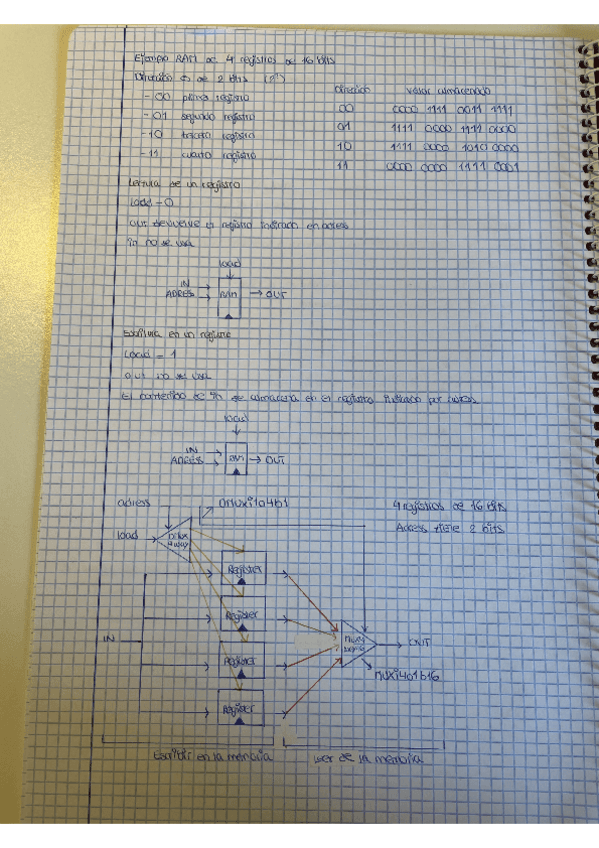 Ejemplo RAM de 4 registros de 16 bits
Dirección es de 2 bits (2²)
- 00 primer registro
- 01 segundo registro
- 10 tercero registro
- 11 cuarto registro
Dirección Valor almacenado
00 0000 1111 0011 1111
01 1111 0000 1111 0000
10 1111 0000 1010 0000
11 0000 0000 1111 0001
Lectura de un registro
Load = 0
Out devuelve el registro indicado en adress
In no se usa
load
IN
ADRESS RAM → OUT
Escritura en un registro
Load = 1
Out no se usa
El contenido de In se almacena en el registro indicado por adress
load
IN
ADRESS RAM → OUT
adress
load
nmux1a4b1
4 registros de 16 bits
Adress tiene 2 bits
Register
Register
Register
Register
IN
OUT
mux4a1b16
Escribir en la memoria
Leer de la memoria